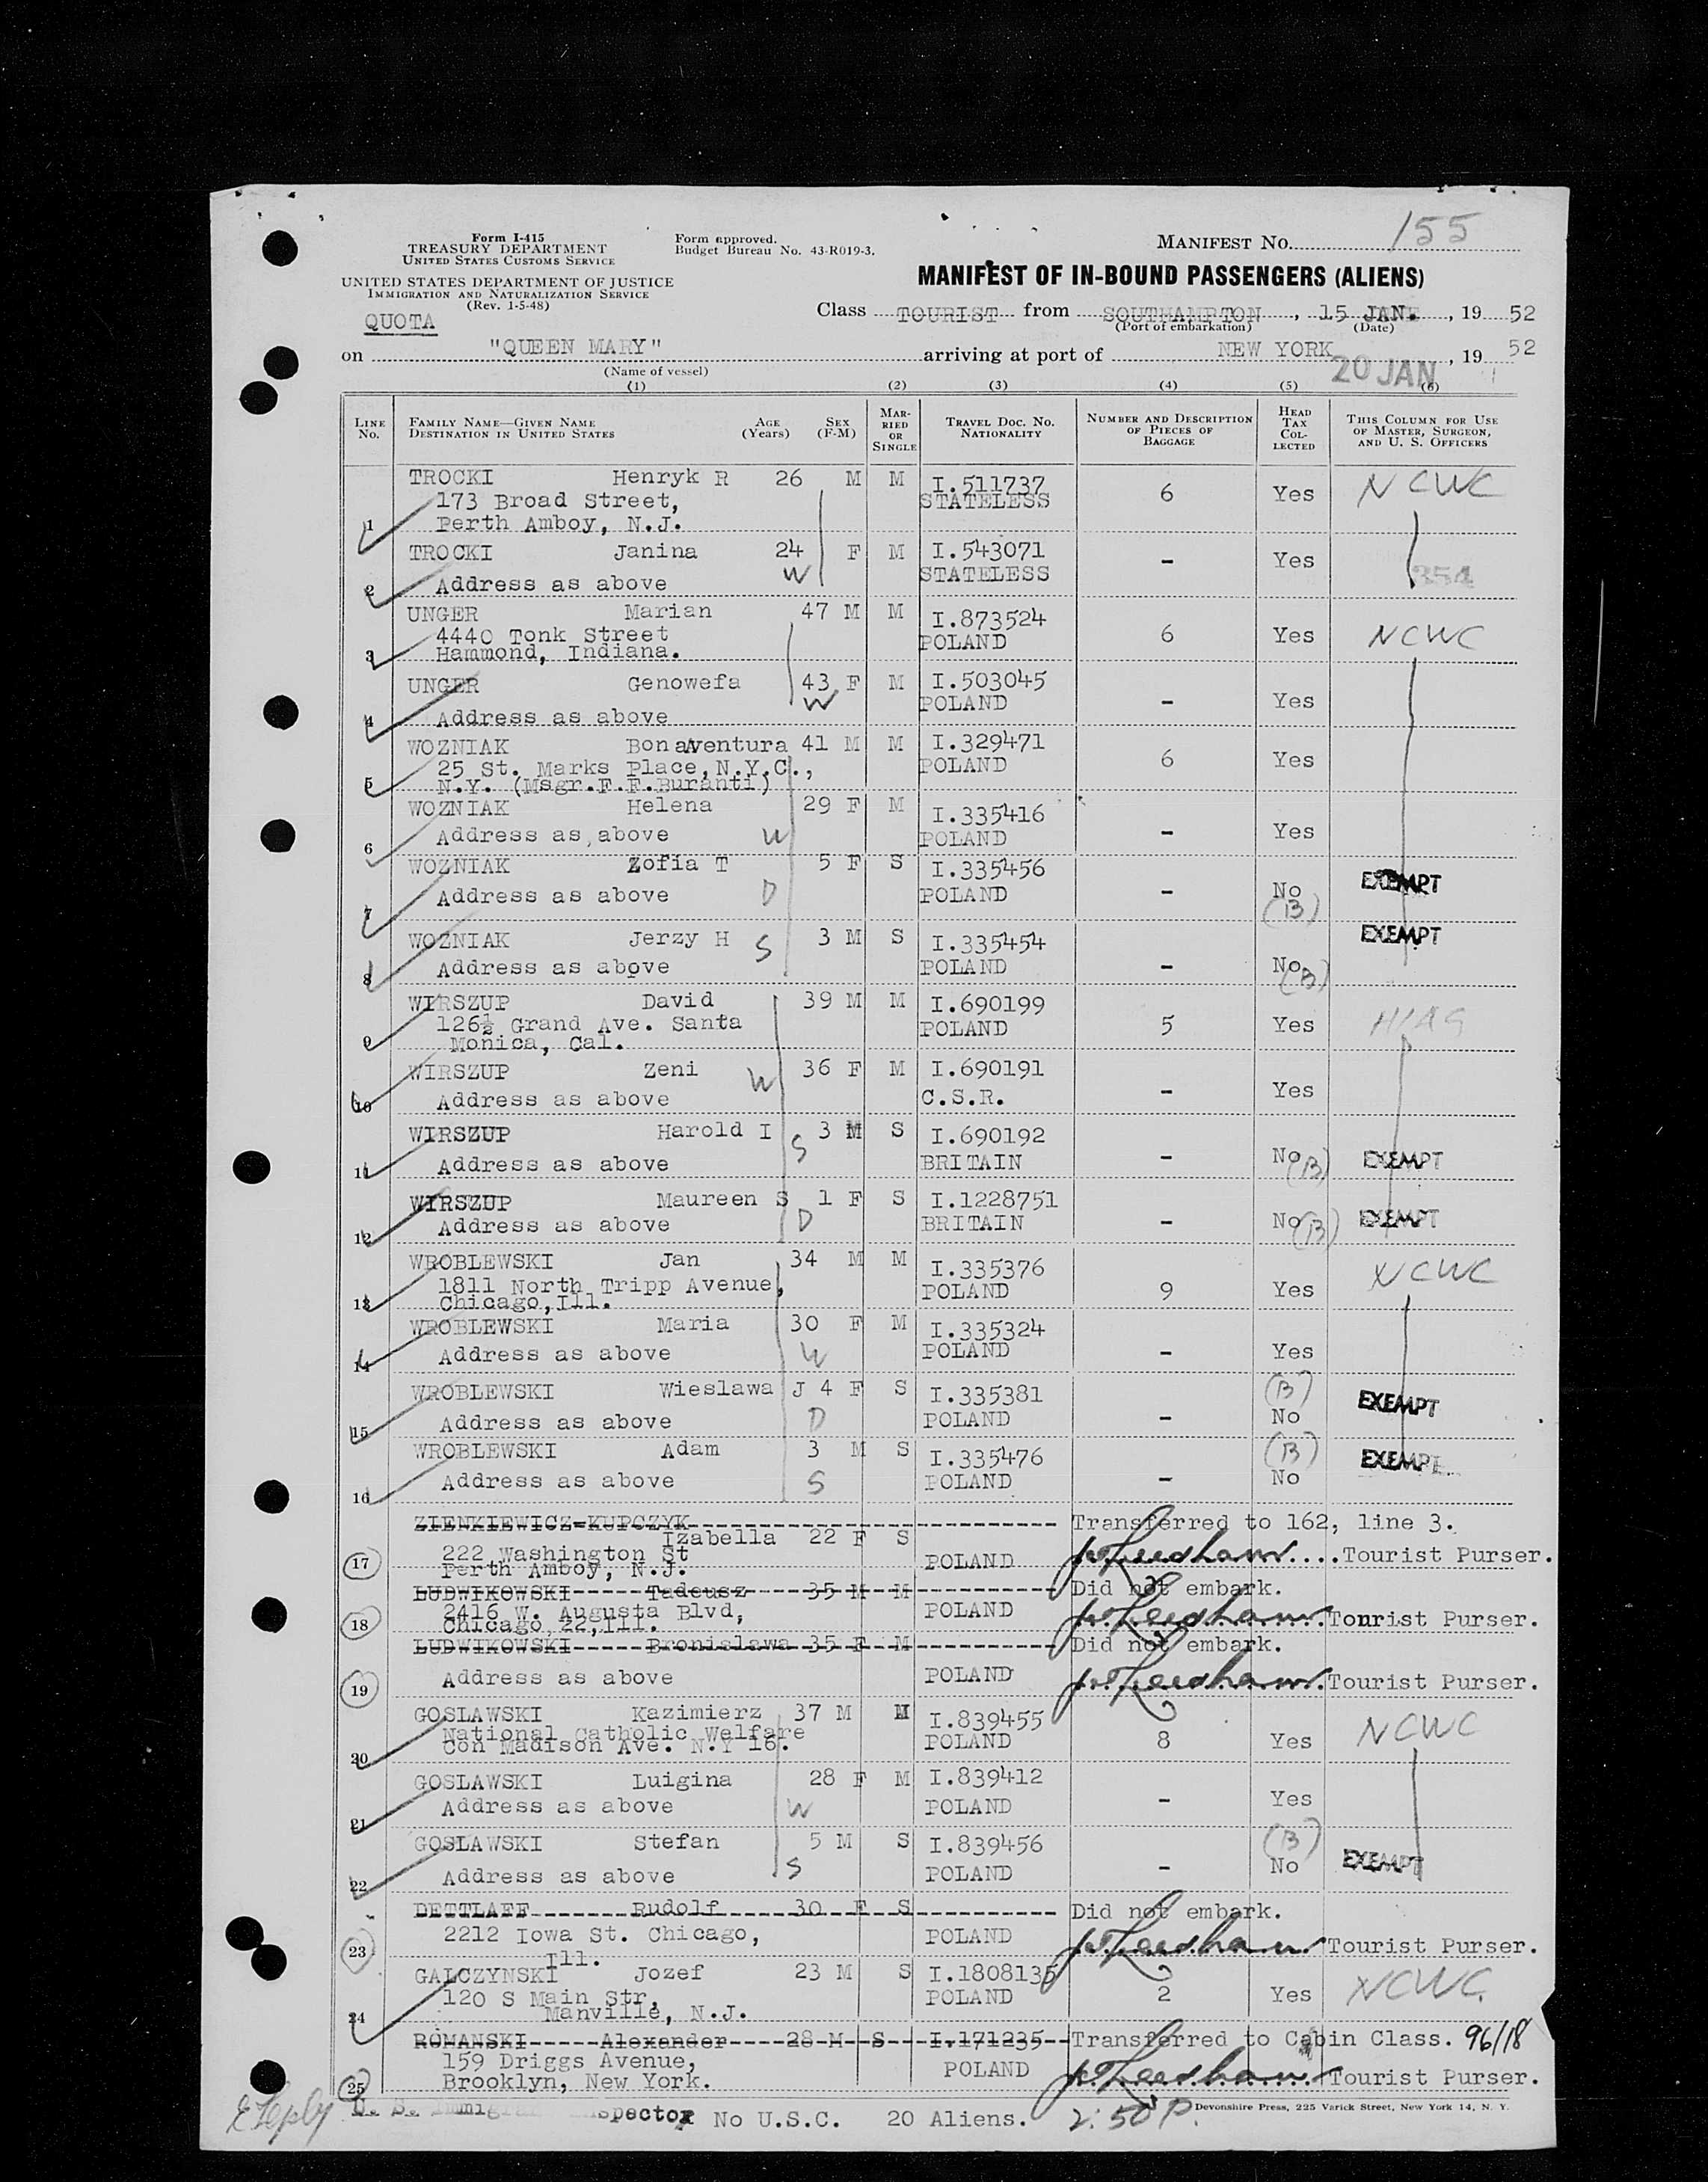 Form I-415
TREASURY DEPARTMENT
UNITED STATES CUSTOMS SERVICE
UNITED STATES DEPARTMENT OF JUSTICE
IMMIGRATION AND NATURALIZATION SERVICE
(Rev. 1-5-48)
QUOTA
Form approved.
Budget Bureau No. 43-R019-3.
MANIFEST NO. 155
MANIFEST OF IN-BOUND PASSENGERS (ALIENS)
Class TOURIST from SOUTHAMPTON, 15 JAN., 19 52
(Port of embarkation) (Date)
on "QUEEN MARY" arriving at port of NEW YORK 20 JAN, 19 52
(Name of vessel)
(1) (2) (3) (4) (5) (6)
LINE No. FAMILY NAME—GIVEN NAME DESTINATION IN UNITED STATES AGE (Years) SEX (F-M) MARRIED OR SINGLE TRAVEL DOC. NO. NATIONALITY NUMBER AND DESCRIPTION OF PIECES OF BAGGAGE HEAD TAX COLLECTED THIS COLUMN FOR USE OF MASTER, SURGEON, AND U. S. OFFICERS
TROCKI Henryk R 26 M M I.511737 6 Yes NCWC
173 Broad Street, STATELESS
1 Perth Amboy, N.J.
TROCKI Janina 24 F M I.543071 - Yes
2 Address as above W STATELESS 354
UNGER Marian 47 M M I.873524 6 Yes NCWC
4440 Tonk Street POLAND
3 Hammond, Indiana.
UNGER Genowefa 43 F M I.503045 - Yes
4 Address as above W POLAND
WOZNIAK Bonaventura 41 M M I.329471 6 Yes
25 St. Marks Place, N.Y.C., POLAND
5 N.Y. (Msgr.F.F.Buranti)
WOZNIAK Helena 29 F M I.335416 - Yes
6 Address as above W POLAND
WOZNIAK Zofia T 5 F S I.335456 - No (B) EXEMPT
7 Address as above D POLAND
WOZNIAK Jerzy H S 3 M S I.335454 - No (B) EXEMPT
8 Address as above POLAND
WIRSZUP David 39 M M I.690199 5 Yes HIAS
126½ Grand Ave. Santa POLAND
9 Monica, Cal.
WIRSZUP Zeni W 36 F M I.690191 - Yes
10 Address as above C.S.R.
WIRSZUP Harold I S 3 M S I.690192 - No (B) EXEMPT
11 Address as above BRITAIN
WIRSZUP Maureen S 1 F S I.1228751 - No (B) EXEMPT
12 Address as above D BRITAIN
WROBLEWSKI Jan 34 M M I.335376 9 Yes NCWC
1811 North Tripp Avenue, POLAND
13 Chicago, Ill.
WROBLEWSKI Maria 30 F M I.335324 - Yes
14 Address as above W POLAND
WROBLEWSKI Wieslawa J 4 F S I.335381 - (B) No EXEMPT
15 Address as above D POLAND
WROBLEWSKI Adam 3 M S I.335476 - (B) No EXEMPT
16 Address as above S POLAND
ZIENKIEWICZ=KUPCZYK Transferred to 162, line 3.
Izabella 22 F S
17 222 Washington St POLAND Tourist Purser.
Perth Amboy, N.J.
LUDWIKOWSKI Tadeusz 35 M M Did not embark.
18 2416 W. Augusta Blvd, POLAND Tourist Purser.
Chicago, 22, Ill.
LUDWIKOWSKI Bronislawa 35 F M Did not embark.
19 Address as above POLAND Tourist Purser.
GOSLAWSKI Kazimierz 37 M M I.839455 8 Yes NCWC
National Catholic Welfare POLAND
20 Con Madison Ave. N.Y 16.
GOSLAWSKI Luigina 28 F M I.839412 - Yes
21 Address as above W POLAND
GOSLAWSKI Stefan 5 M S I.839456 - (B) No EXEMPT
22 Address as above S POLAND
DETTLAFF Rudolf 30 F S Did not embark.
23 2212 Iowa St. Chicago, POLAND Tourist Purser.
Ill.
GALCZYNSKI Jozef 23 M S I.1808135 2 Yes NCWC.
120 S Main Str, POLAND
24 Manville, N.J.
ROMANSKI Alexander 28 M S I.171235 Transferred to Cabin Class. 96/18
159 Driggs Avenue, POLAND Tourist Purser.
25 Brooklyn, New York.
U. S. Inspector No U.S.C. 20 Aliens. 2:50 P.
Devonshire Press, 225 Varick Street, New York 14, N. Y.